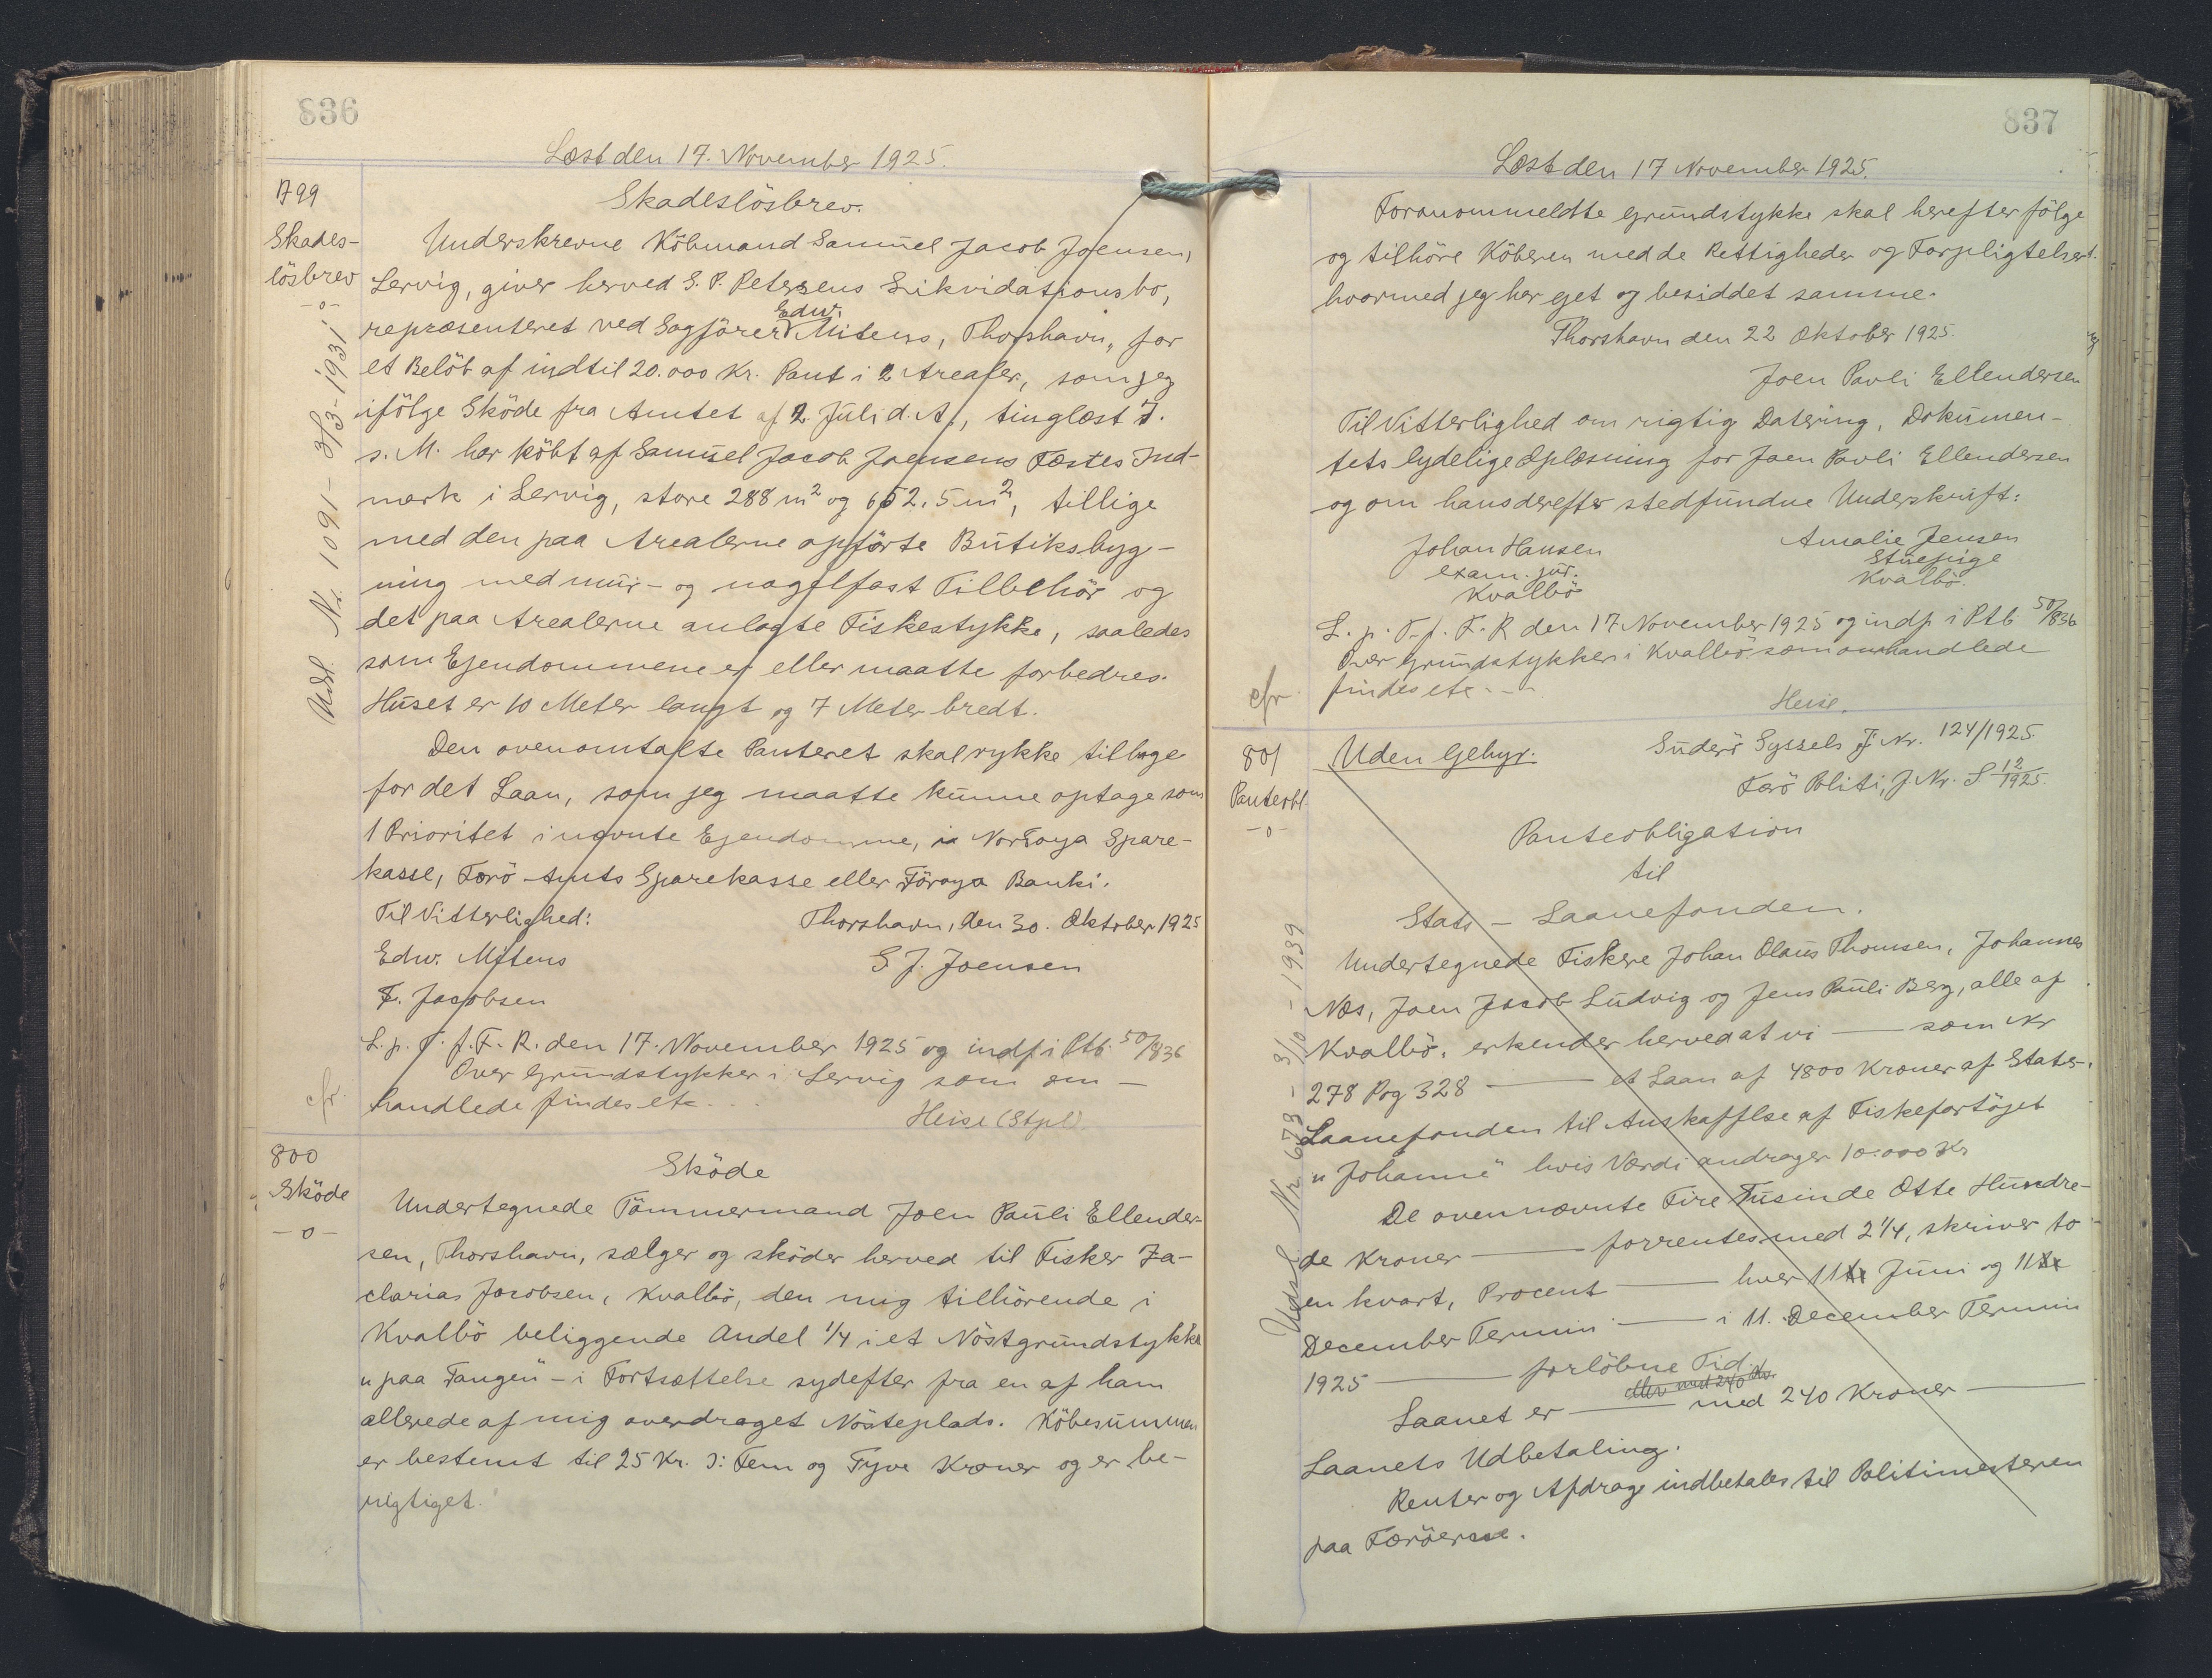 836
Læst den 17. November 1925.
799
Skades-
lösbrev
-o-
Udsl. Nr. 1091 - 3/3-1931
Skadeslösbrev.
Underskrevne Köbmand Samuel Jacob Joensen,
Lervig, giver herved S. P. Petersens Likvidationsbo,
repræsenteret ved Sagförer Edw. Mitens, Thorshavn, for
et Belöb af indtil 20.000 Kr. Pant i 2 Arealer, som jeg
ifölge Sköde fra Amtet af 2. Juli d. A., tinglæst 7.
s. M. har köbt af Samuel Jacob Joensens Fæstes Ind-
mark i Lervig, store 288 m² og 652,5 m², tillige
med den paa Arealerne opförte Butiksbyg-
ning med mur- og nagelfast Tilbehör og
det paa Arealerne anlagte Fiskestykke, saaledes
som Ejendommene er eller maatte forbedres.
Huset er 10 Meter langt og 7 Meter bredt.
Den ovenomtalte Panteret skal rykke tilbage
for det Laan, som jeg maatte kunne optage som
1 Prioritet i nævnte Ejendomme, i Norðoya Spare-
kasse, Færö Amts Sparekasse eller Föroya Banki.
Til Vitterlighed:
Thorshavn, den 30. Oktober 1925
Edw. Mitens
S J. Joensen
F. Jacobsen
L. p. T. f. F. R. den 17. November 1925 og indf i Ptb. 50/836
Over Grundstykker i Lervig som om-
cfr.
handlede findes etc...
Heise (Stpl)
800
Sköde
-o-
Sköde
Undertegnede Tömmermand Joen Pauli Ellender-
sen, Thorshavn, sælger og sköder herved til Fisker Za-
clarias Jacobsen, Kvalbö, den mig tilhörende i
Kvalbö beliggende Andel 1/4 i et Nöstgrundstykke
"paa Tangen" - i Fortsættelse sydefter fra en af ham
allerede af mig overdraget Nösteplads. Köbesummen
er bestemt til 25 Kr. ɔ: Fem og Tyve Kroner og er be-
rigtiget.
837
Læst den 17 November 1925.
Foranommeldte Grundstykke skal herefter fölge
og tilhöre Köberen med de Rettigheder og Forpligtelser
hvormed jeg har ejet og besiddet samme.
Thorshavn den 22 Oktober 1925.
Joen Pavli Ellendersen
Til Vitterlighed om rigtig Datering, Dokumen-
tets lydelige Oplæsning for Joen Pavli Ellendersen
og om hans derefter stedfundne Underskrift:
Johan Hansen
exam. jur.
Kvalbö
Amalie Jensen
Stuepige
Kvalbö.
L. p. T. f. F. R den 17 November 1925 og indf i Ptb 50/836
Over Grundstykker i Kvalbö som omhandlede
cfr
findes etc - - -
Heise.
801
Panteobl.
-o-
Udsl. Nr. 673 - 3/10 - 1939
Uden Gebyr.
Suderö Syssels J. Nr. 124/1925
Færö Politi, J Nr. S 12/1925.
Panteobligation
til
Stats - Laanefonden.
Undertegnede Fiskere Johan Olaus Thomsen, Johannes
Næs, Joen Jacob Ludvig og Jens Pauli Berg, alle af
Kvalbö, erkender herved at vi — som Nr
278 Pag 328 — et Laan af 4800 Kroner af Stats-
Laanefonden til Anskaffelse af Fiskefartöjet
"Johanne" hvis Værdi andrager 10.000 Kr
De ovennævnte Fire Tusinde Otte Hundre-
de Kroner — forrentes med 2 1/4, skriver to
en kvart, Procent — hver 11te Juni og 11te
December Termin — i 11. December Termin
1925 — forlöbne Tid.
Laanet er — med 240 Kroner —
Laanets Udbetaling.
Renter og Afdrag indbetales til Politimesteren
paa Færöerne.